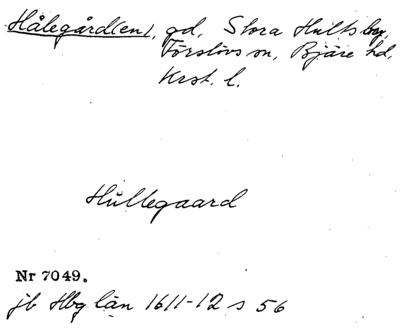 Hålegård(en), gd, Stora Hults by,
Förslövs sn, Bjäre hd,
Krst. l.
Hullegaard
Nr 7049.
jb Hbg län 1611-12 s 56